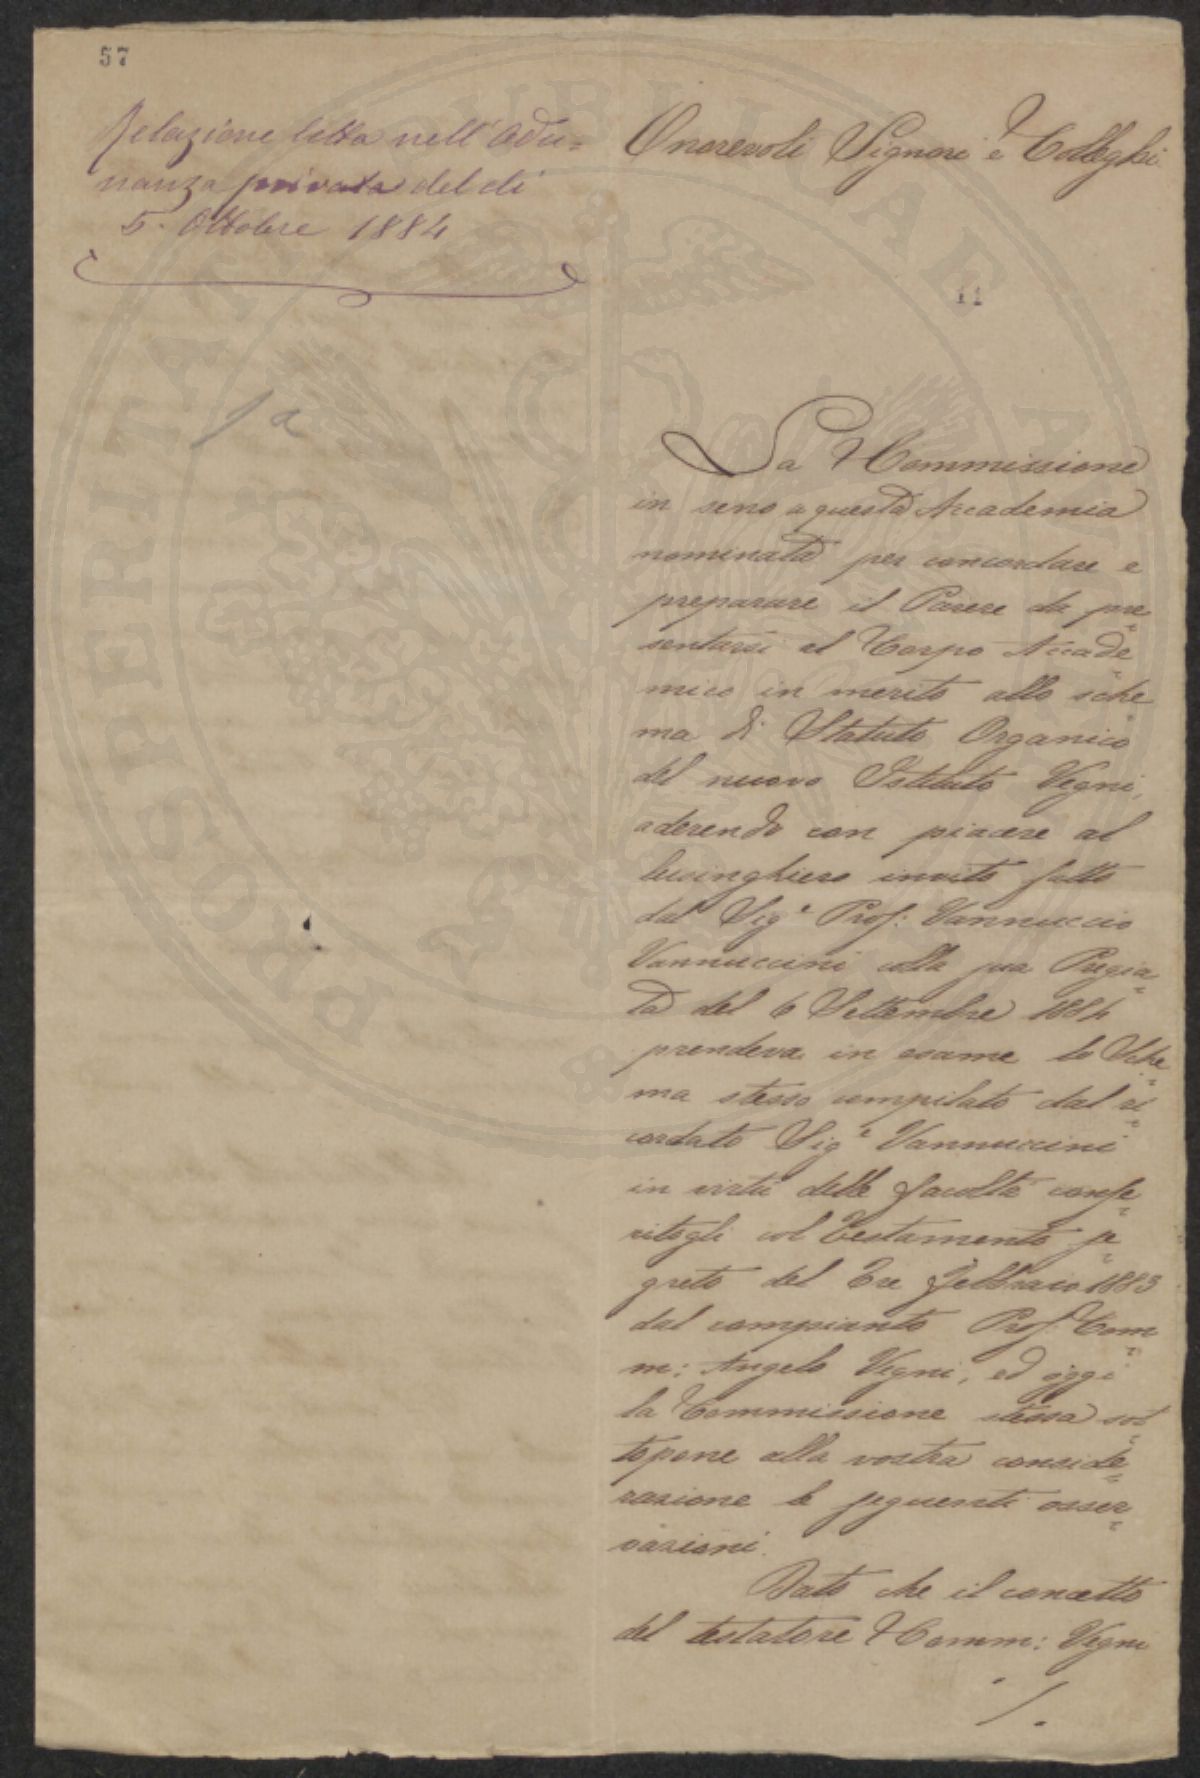 57
Relazione letta nell'Adu=
nanza privata del dì
5. Ottobre 1884
1a
Onorevoli Signori e Colleghi
11
La Commissione
in seno a questa Accademia
nominata per concordare e
preparare il Parere da pre=
sentarsi al Corpo Accade=
mico in merito allo sche=
ma di Statuto Organico
del nuovo Istituto Vegni,
aderendo con piacere al
lusinghiero invito fatto
dal Sigr Prof: Vannuccio
Vannuccini colla sua Pregia=
ta del 6 Settembre 1884
prendeva in esame lo Sche=
ma stesso compilato dal ri=
cordato Sigr Vannuccini
in virtù delle facoltà confe=
ritegli col Testamento se=
greto del Tre Febbraio 1883
dal compianto Prof. Com=
m: Angelo Vegni, ed oggi
la Commissione stessa sot=
topone alla vostra conside=
razione le seguenti osser=
vazioni.
Dato che il concetto
del testatore Comm: Vegni
./.
PROSPERITATI PUBLICAE AUGENDAE